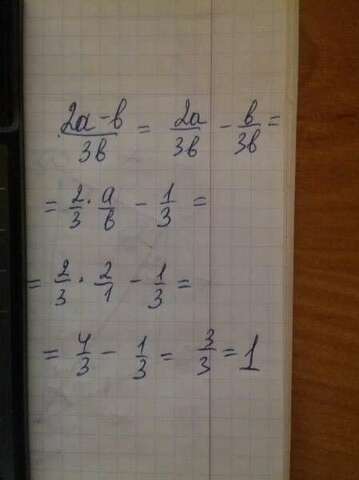 2a-b/3b = 2a/3b - b/3b =
= 2/3 · a/b - 1/3 =
= 2/3 · 2/1 - 1/3 =
= 4/3 - 1/3 = 3/3 = 1